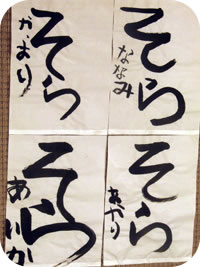 そら
ななみ
そら
かおり
そら
あやり
そら
あいか